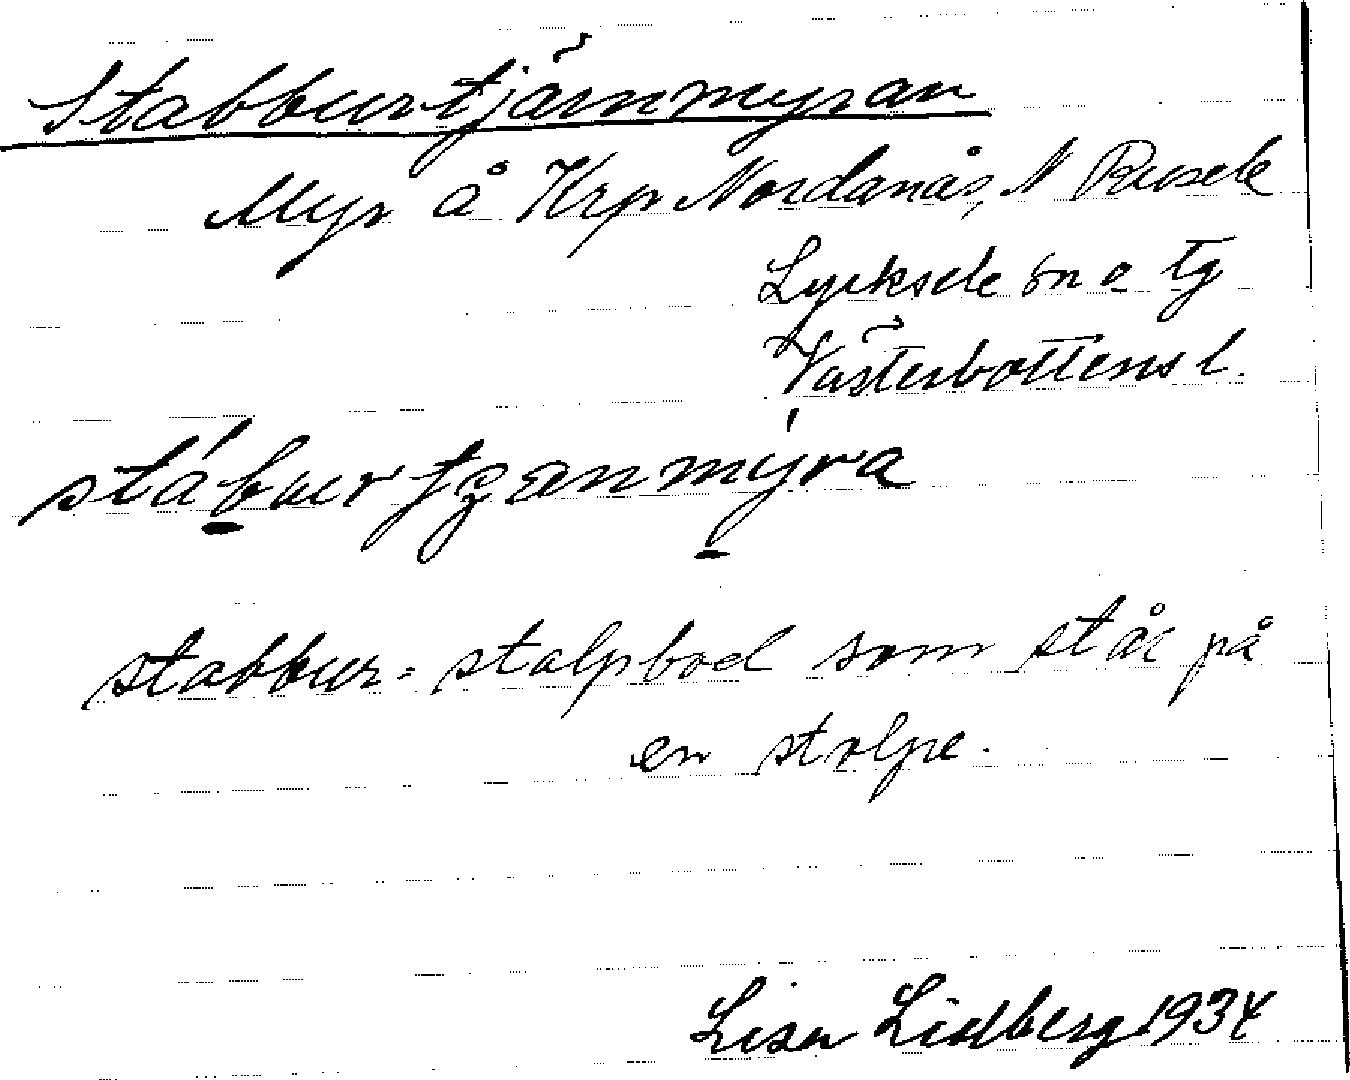 Stabburtjärnmyran
Myr å Krp Nordanås, N Rusele
Lycksele sn o tg
Västerbottens l.
stabbur = stolpbod som står på
en stolpe.
Lisa Lidberg 1934